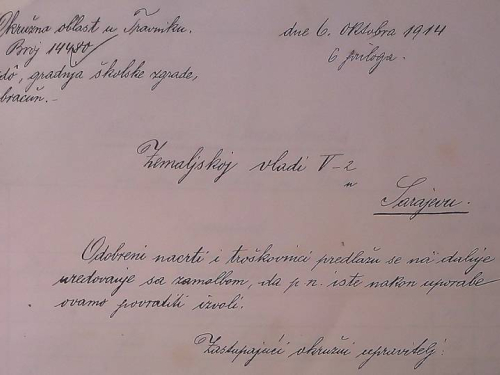 Okružna oblast u Travniku.
dne 6. Oktobra 1914
Broj 14480
6 priloga.
dô, gradnja školske zgrade,
obračun.-
Zemaljskoj vladi V-2
u
Sarajevu.
Odobreni nacrti i troškovnici predlažu se na dalije
uredovanje sa zamolbom, da p. n. iste nakon uporabe
ovamo povratiti izvoli.
Zastupajući okružni upravitelj: